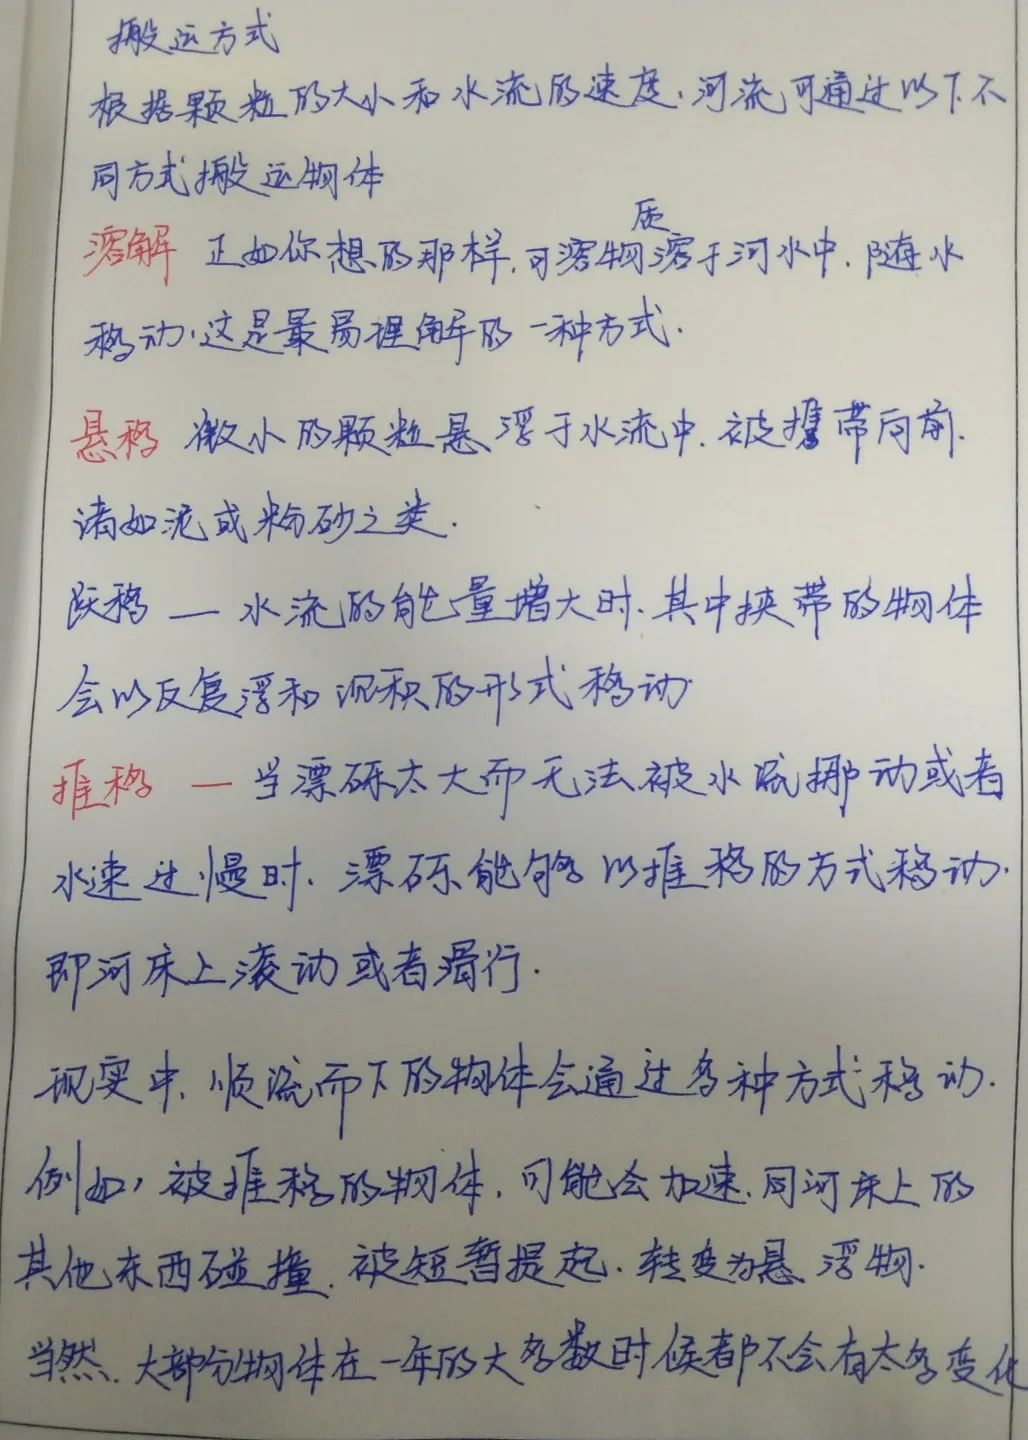 搬运方式
根据颗粒的大小和水流的速度,河流可通过以下不
同方式搬运物体
溶解 正如你想的那样,可溶物质溶于河水中,随水
移动,这是最易理解的一种方式.
悬移 微小的颗粒悬浮于水流中,被携带向前.
诸如泥或粉砂之类.
跃移 — 水流的能量增大时,其中挟带的物体
会以反复浮和沉积的形式移动.
推移 — 当漂砾太大而无法被水流挪动或者
水速过慢时,漂砾能够以推移的方式移动.
即河床上滚动或者滑行.
现实中,顺流而下的物体会通过多种方式移动.
例如,被推移的物体,可能会加速,同河床上的
其他东西碰撞,被短暂提起,转变为悬浮物.
当然,大部分物体在一年的大多数时候都不会有太多变化